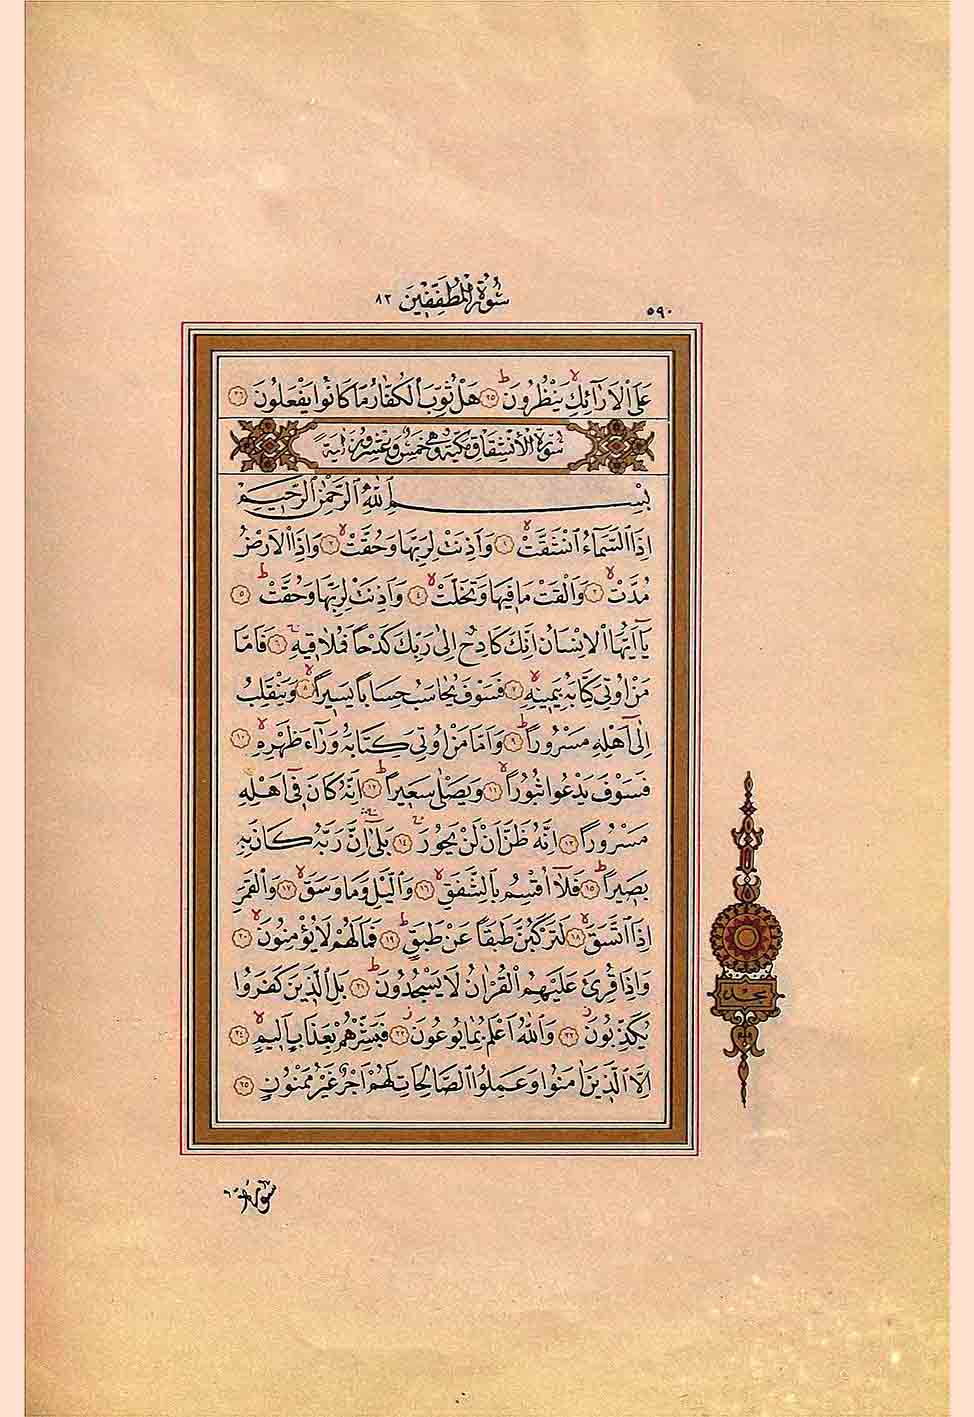 ٥٩٠ سُورَةُ الْمُطَفِّفِينَ ٨٣
عَلَى الْاَرَٓائِكِ يَنْظُرُونَۜ ﴿٣٥﴾ هَلْ ثُوِّبَ الْكُفَّارُ مَا كَانُوا يَفْعَلُونَ ﴿٣٦﴾
سُورَةُ الْاِنْشِقَاقِ مَكِّيَّةٌ وَهِيَ خَمْسٌ وَعِشْرُونَ اٰيَةً
بِسْمِ اللّٰهِ الرَّحْمٰنِ الرَّحِيمِ
اِذَا السَّمَٓاءُ انْشَقَّتْۙ ﴿١﴾ وَاَذِنَتْ لِرَبِّهَا وَحُقَّتْۙ ﴿٢﴾ وَاِذَا الْاَرْضُ
مُدَّتْۙ ﴿٣﴾ وَاَلْقَتْ مَا فِيهَا وَتَخَلَّتْۙ ﴿٤﴾ وَاَذِنَتْ لِرَبِّهَا وَحُقَّتْۜ ﴿٥﴾
يَٓا اَيُّهَا الْاِنْسَانُ اِنَّكَ كَادِحٌ اِلٰى رَبِّكَ كَدْحًا فَمُلَاقِيهِۚ ﴿٦﴾ فَاَمَّا
مَنْ اُو۫تِيَ كِتَابَهُ بِيَمِينِهِۙ ﴿٧﴾ فَسَوْفَ يُحَاسَبُ حِسَابًا يَسِيرًاۙ ﴿٨﴾ وَيَنْقَلِبُ
اِلٰٓى اَهْلِهِ مَسْرُورًاۜ ﴿٩﴾ وَاَمَّا مَنْ اُو۫تِيَ كِتَابَهُ وَرَٓاءَ ظَهْرِهِۙ ﴿١٠﴾
فَسَوْفَ يَدْعُوا ثُبُورًاۙ ﴿١١﴾ وَيَصْلٰى سَعِيرًاۜ ﴿١٢﴾ اِنَّهُ كَانَ فِٓي اَهْلِهِ
مَسْرُورًاۜ ﴿١٣﴾ اِنَّهُ ظَنَّ اَنْ لَنْ يَحُورَۚ ﴿١٤﴾ بَلٰىۚۛ اِنَّ رَبَّهُ كَانَ بِهِ
بَصِيرًاۜ ﴿١٥﴾ فَلَٓا اُقْسِمُ بِالشَّفَقِۙ ﴿١٦﴾ وَالَّيْلِ وَمَا وَسَقَۙ ﴿١٧﴾ وَالْقَمَرِ
اِذَا اتَّسَقَۙ ﴿١٨﴾ لَتَرْكَبُنَّ طَبَقًا عَنْ طَبَقٍۜ ﴿١٩﴾ فَمَا لَهُمْ لَا يُؤْمِنُونَۙ ﴿٢٠﴾
وَاِذَا قُرِئَ عَلَيْهِمُ الْقُرْاٰنُ لَا يَسْجُدُونَۜ ﴿٢١﴾ بَلِ الَّذِينَ كَفَرُوا
يُكَذِّبُونَۘ ﴿٢٢﴾ وَاللّٰهُ اَعْلَمُ بِمَا يُوعُونَۘ ﴿٢٣﴾ فَبَشِّرْهُمْ بِعَذَابٍ اَلِيمٍۙ ﴿٢٤﴾
اِلَّا الَّذِينَ اٰمَنُوا وَعَمِلُوا الصَّالِحَاتِ لَهُمْ اَجْرٌ غَيْرُ مَمْنُونٍ ﴿٢٥﴾
سجده
سورة